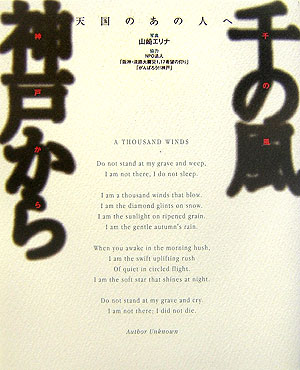 天国のあの人へ
千の風
千の風
神戸から
神戸から
写真
山崎エリナ
協力
NPO法人
「阪神・淡路大震災1.17希望の灯り」
「がんばろう!!神戸」
A THOUSAND WINDS
Do not stand at my grave and weep,
I am not there, I do not sleep.
I am a thousand winds that blow.
I am the diamond glints on snow.
I am the sunlight on ripened grain.
I am the gentle autumn's rain.
When you awake in the morning hush,
I am the swift uplifting rush
Of quiet in circled flight.
I am the soft star that shines at night.
Do not stand at my grave and cry.
I am not there; I did not die.
Author Unknown